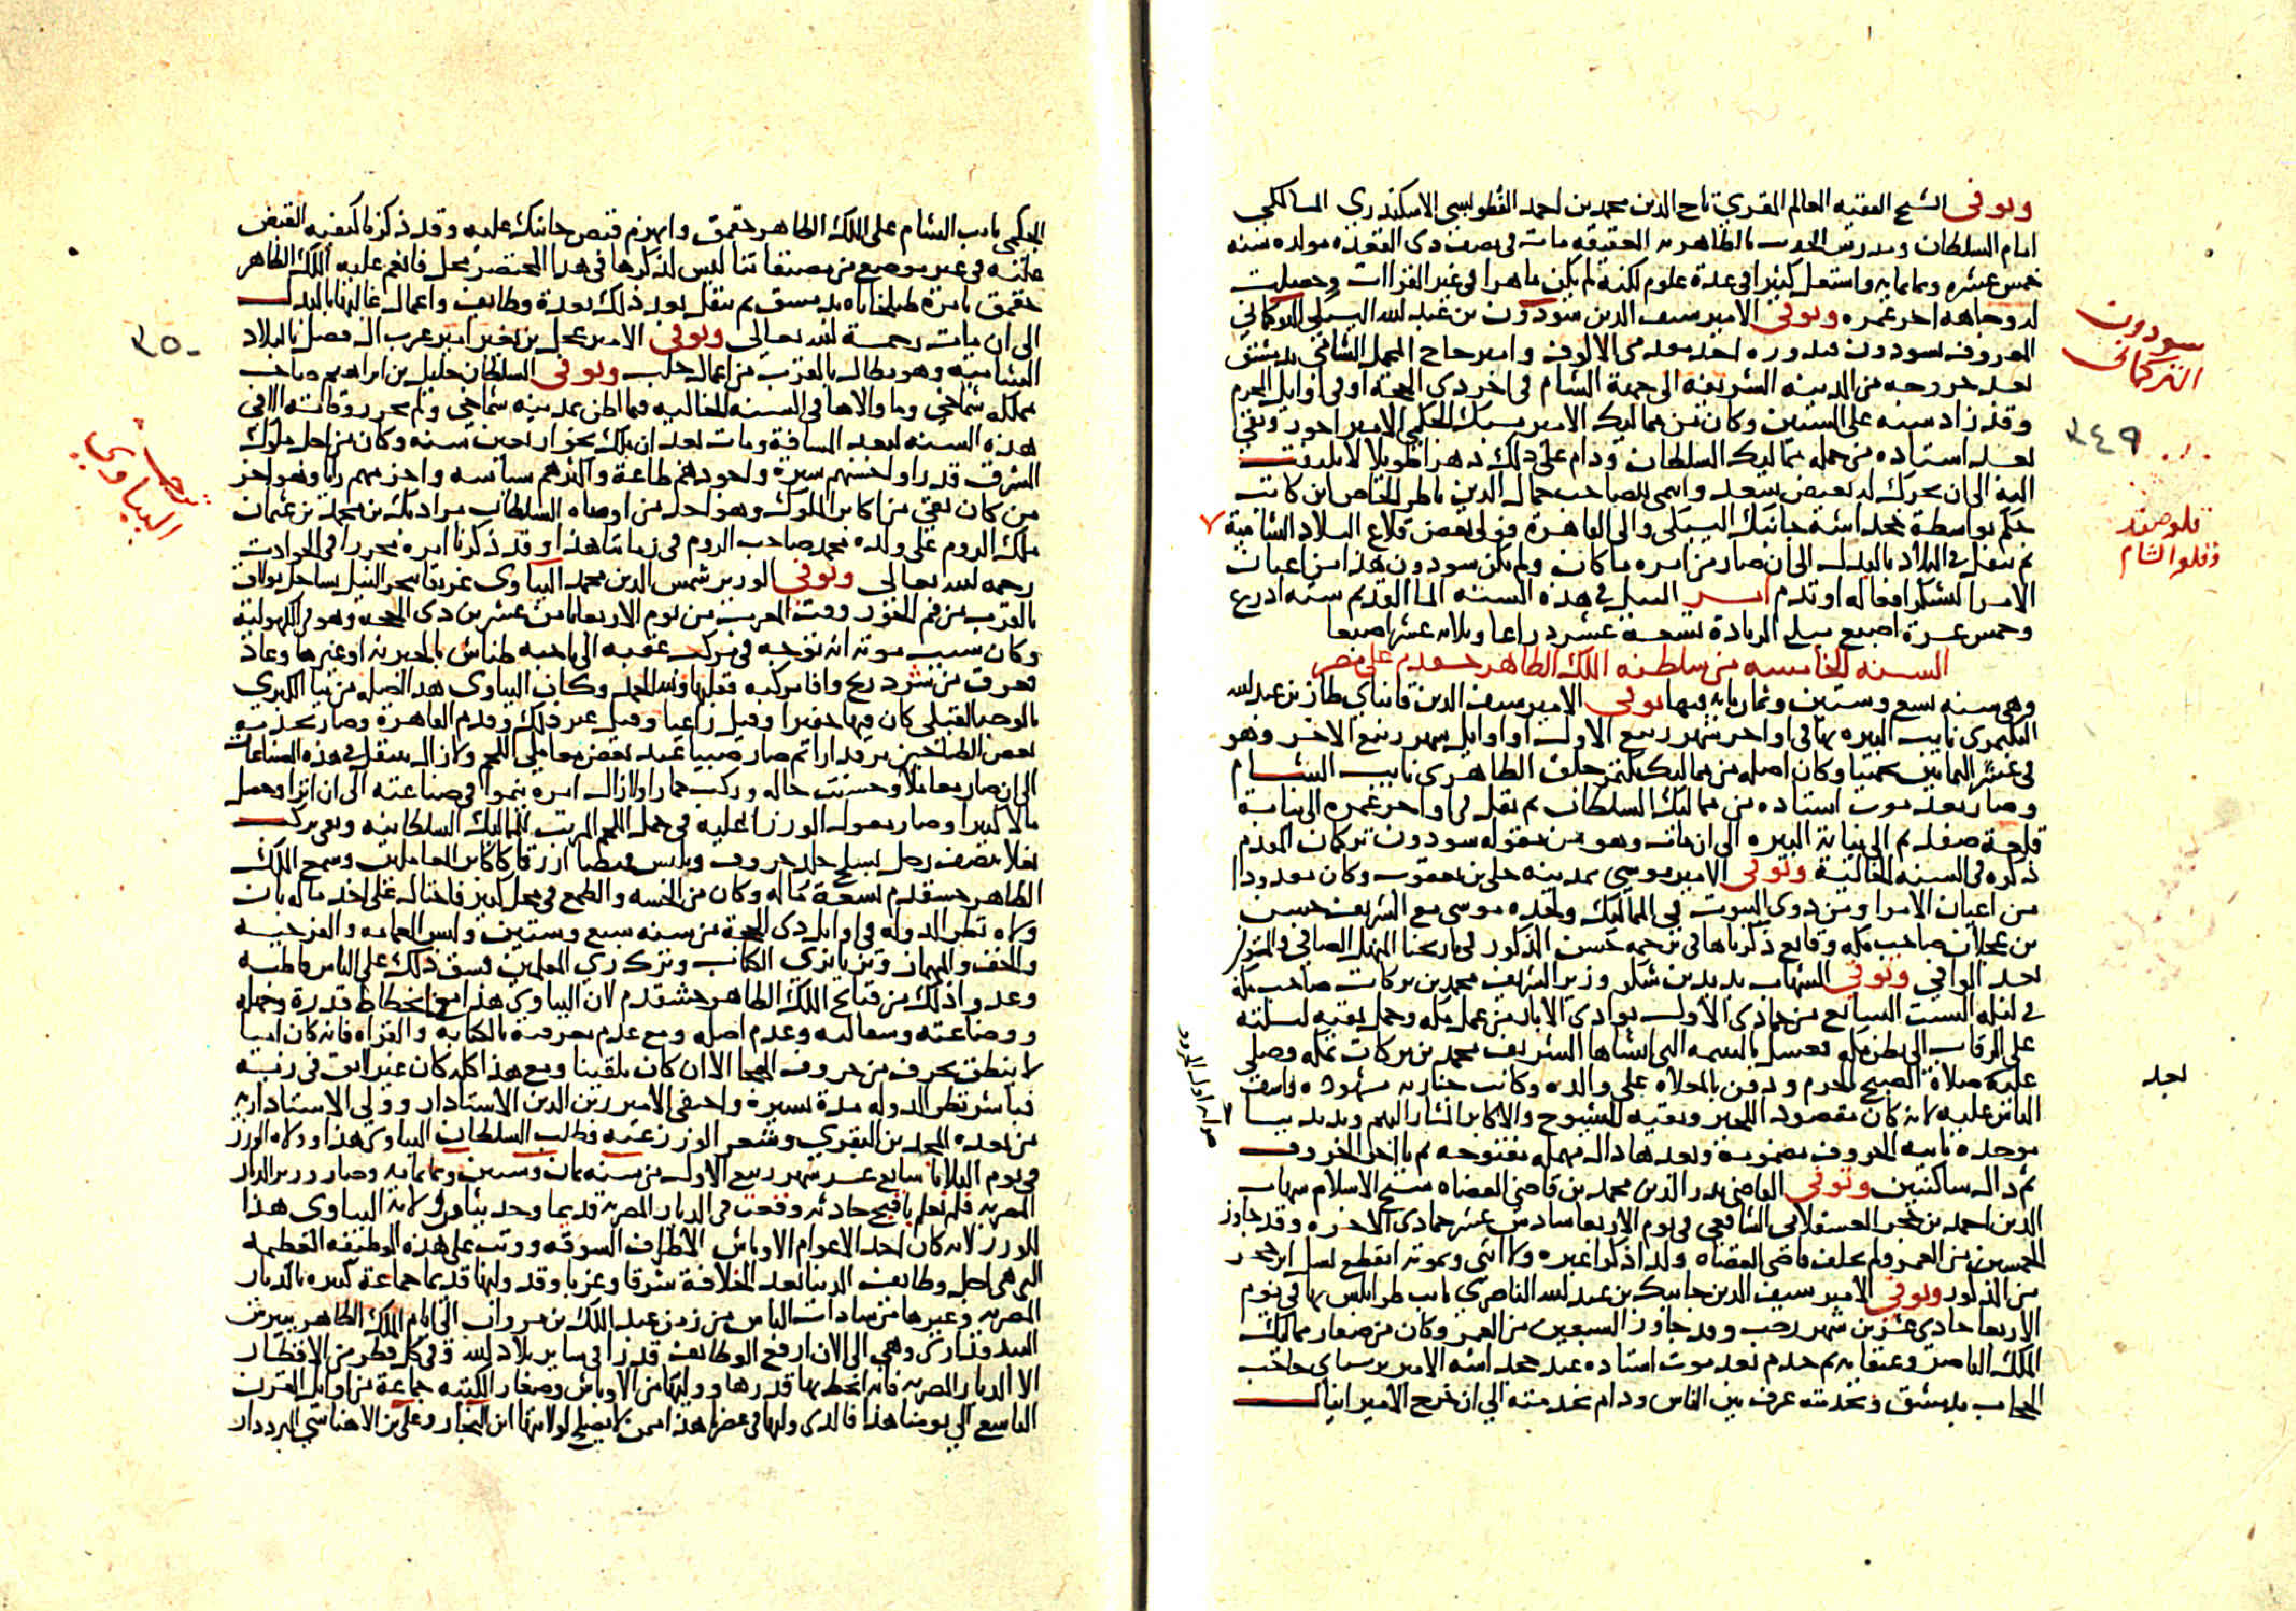 وتوفى الشيخ الفقيه العالم المقري تاج الدين محمد بن احمد الفطويسي الاسكندري المالكي
امام السلطان ومدرس الحديث بالظاهرية العتيقة مات في نصف ذي القعدة مولده سنة
خمس عشرة وثمانمايه واشتغل كثيرا في عدة علوم لكنه لم يكن ماهرا في غير القراات وحصلت
له وجاهه اخر عمره وتوفى الامير سيف الدين سودون بن عبد الله اليشبكي التركماني
المعروف بسودون قندوره احد مقدمى الالوف وامير حاج المحمل الشامي بدمشق
بعد خروجه من المدينه الشريفه الى جهة الشام في اخر ذي الحجة او في اوايل المحرم
وقد زاد سنه على الستين وكان من مماليك الامير يشبك الجكمي الامير اخور وبقي
بعد استاده من جملة مماليك السلطان ودام على ذلك دهرا طويلا لا يلتفت
اليه الى ان تحرك له بعض سعد وانتمى للصاحب جمال الدين ناظر الخاص ابن كاتب
جكم بواسطة خجداشه جانبك اليشبكي والي القاهرة فولي بعض قلاع البلاد الشامية
ثم تنقل في البلاد بالبدل الى ان صار من امره ما كان ولم يكن سودون هذا من اعيان
الامرا لتشكر افعاله او تذم امر النيل في هذه السنه الما القديم سته ادرع
وخمس عشرة اصبع مبلغ الزيادة تسعة عشر دراعا وثلاثه عشر اصبعا
السنه الخامسه من سلطنه الملك الظاهر خشقدم على مصر
وهى سنه تسع وستين وثمان مايه فيها توفى الامير سيف الدين قانباي طاز بن عبد الله
البكتمرى نايب البيره بها في اواخر شهر ربيع الاول او اوايل شهر ربيع الاخر وهو
في عشر الثمانين تخمينا وكان اصله من مماليك بكتمر جلق الظاهرى نايب الشام
وصار بعد موت استاده من مماليك السلطان ثم نقل في اواخر عمره الى نيابة
قلعة صفد ثم الى نيابة البيره الى ان مات وهو من مقوله سودون تركمان المقدم
ذكره في السنه الخالية وتوفى الامير موسى بمدينه حلى بن يعقوب وكان معدودا
من اعيان الامرا ومن ذوى البيوت في الممالك ولجده موسى مع الشريف حسن
بن عجلان صاحب مكه وقايع ذكرناها في ترجمه حسن المذكور في تاريخنا المنهل الصافي والمستوفي
بعد الوافي وتوفى الشهاب بديد بن شكر وزير الشريف محمد بن بركات صاحب مكة
في ليله السبت السابع من جمادى الاول بوادى الابار من عمل مكه وحمل بقيه ليلته
على الرقاب الى بطن مكه فغسل بالميمه التي انشاها الشريف محمد بن بركات بمكه وصلى
عليه صلاة الصبح بالحرم ودفن بالمعلاه على والده وكانت جنازته مشهوده واسف
الناس عليه لانه كان مقصود الخير وبقيه الشيوخ والاكابر المشار اليهم وبديد ببا
موحده ثانيه الحروف مضمومة وبعدها دال مهمله مفتوحه ثم يا اخر الحروف
ثم دال ساكنين وتوفى القاضي بدر الدين محمد بن قاضي القضاه شيخ الاسلام شهاب
الدين احمد بن حجر العسقلاني الشافعي في يوم الاربعا سادس عشر جمادى الاخره وقد جاوز
الخمسين من العمر ولم يخلف قاضي القضاه ولدا ذكرا غيره ولا انثى وبموته انقطع نسل ابن حجر
من الذكور وتوفى الامير سيف الدين جانبك بن عبد الله الناصرى نايب طرابلس بها في يوم
الاربعا حادى عشرين شهر رجب وقد جاوز السبعين من العمر وكان من صغار مماليك
الملك الناصر وعتقايه ثم خدم بعد موت استاده عند خجداشه الامير برسباى حاجب
الحجاب بدمشق وبخدمته عرف بين الناس ودام بخدمته الي ان خرج الامير اينال
سودون
التركماني
٣٤٩
قلعه صفد
وقلعه الشام
بعد
الجكمي نايب الشام على الملك الظاهر جقمق وانهزم قبض جانبك عليه وقد ذكرنا كيفيه القبض
عليه في غير موضع من مصنفاتنا ليس لذكرها في هذا المختصر محل فانعم عليه الملك الظاهر
جقمق بامرة طبلخاناه بدمشق ثم تنقل بعد ذلك بعدة وظايف واعمال غالبها بالبدل
الى ان مات رحمة الله تعالى وتوفى الامير عجل بن نعير امير عرب ال فضل بالبلاد
الشاميه وهو بطال بالقرب من اعمال حلب وتوفى السلطان خليل بن ابراهيم صاحب
مملكه شماخي وما والاها في السنه الخاليه فيما اظن بمدينه شماخي ولم يحرر وفاته الا في
هذه السنه لبعد المسافة ومات بعد ان ملك نحو اربعين سنه وكان من اجل ملوك
الشرق قدرا واحسنهم سيرة واجودهم طاعة واكثرهم سياسه واحزمهم رايا وهو اخر
من كان بقي من اكابر الملوك وهو احد من اوصاه السلطان مراد بك بن محمد بن عثمان
ملك الروم على ولده محمد صاحب الروم في زماننا هذا وقد ذكرنا امره محررا في الحوادث
رحمه الله تعالى وتوفى الوزير شمس الدين محمد الببآوى غريقا ببحر النيل بساحل بولاق
بالقرب من فم الخور وقت المغرب من يوم الاربعا ثامن عشرين ذى الحجة وهو في الكهولية
وكان سبب موته انه توجه في مركب عقبه الى ناحيه طناش بالجيزيه او غيرها وعاد
فغرق من شرد ريح وافا مركبه فقلبها ولله الحمد وكان الببآوى هذا اصله من ببا الكبرى
بالوجه القبلي كان فيها خفيرا وقيل راعيا وقيل غير ذلك وقدم القاهرة وصار يخدم
بعض الطباخين مرقدارا ثم صار صبيا عند بعض معاملي اللحم ولا زال يتنقل في هذه الصناعات
الى ان صار معاملا وحسنت حاله وركب حمارا ولا زال امره ينموا في صناعته الى ان اثرا وحصل
مالا كبيرا وصار معول الوزرا عليه في حمل اللحم المرتب للمماليك السلطانيه وبقى يركب
بغلا بنصف رحل بسلخ جلد خروف ويلبس قميصا ازرقا كاكابر المعاملين وسمع الملك
الظاهر خشقدم بسعة ماله وكان من الخسه والطمع في محل كبير فاحتال على اخذ ماله بان
ولاه نظر الدوله في اوايل ذى الحجة من سنه سبع وستين ولبس العمامه والفرجيه
والخف والمهماز وتزيا بزى الكتاب وترك زي المعاملين فشق ذلك على الناس قاطبه
وعدوا ذلك من قبايح الملك الظاهر خشقدم لان الببآوي هذا مع انحطاط قدره وجهله
ووضاعته وسفالته وعدم اصله ومع عدم معرفته بالكتابه والقراه فانه كان اميا
لا ينطق بحرف من حروف الهجا الا ان كان تلقينا ومع هذا كله كان غير لايق في زيه
فباشر نظر الدوله مدة يسيرة واختفى الامير زين الدين الاستادار وولي الاستاداريه
من بعده المجد بن البقري وشغر الوزر عنه فطلب السلطان الببآوى هذا وولاه الوزر
في يوم الثلاثا سابع عشر شهر ربيع الاول من سنه ثمان وستين وثمانمايه وصار وزير الديار
المصريه فلم نعلم باقبح حادثه وقعت في الديار المصرية قديما وحديثا من ولايه الببآوى هذا
للوزر لانه كان احد الاعوام الاوباش الاطراف السوقه ووثب على هذه الوظيفه العظيمه
التي هي اجل وظايف الدنيا بعد الخلافة شرقا وغربا وقد وليها قديما جماعة كبيره بالديار
المصريه وغيرها من سادات الناس من زمن عبد الملك بن مروان الى ايام الملك الظاهر بيبرس
البندقدارى وهى الى الان ارفع الوظايف قدرا في ساير بلاد الله وفي كل قطر من الاقطار
الا الديار المصريه فانه انحط بها قدرها ووليها من الاوباش وصغار الكتبه جماعة من اوايل القرن
التاسع الي يومنا هذا فالذى وليها في عصرنا هذا ممن لا يصلح لولايتها ابن النجار وعلي بن الاهناسي البرددار
٣٥٠
صاحب
الببآوي